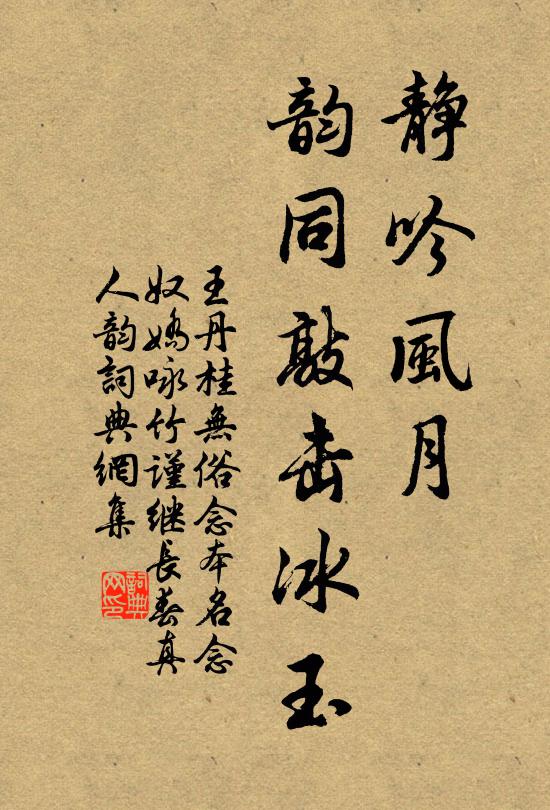 静吟風月
韵同敲击冰玉
王丹桂無俗念本名念
奴嬌咏竹谨继長春真
人韵詞典網集
詞典
网印